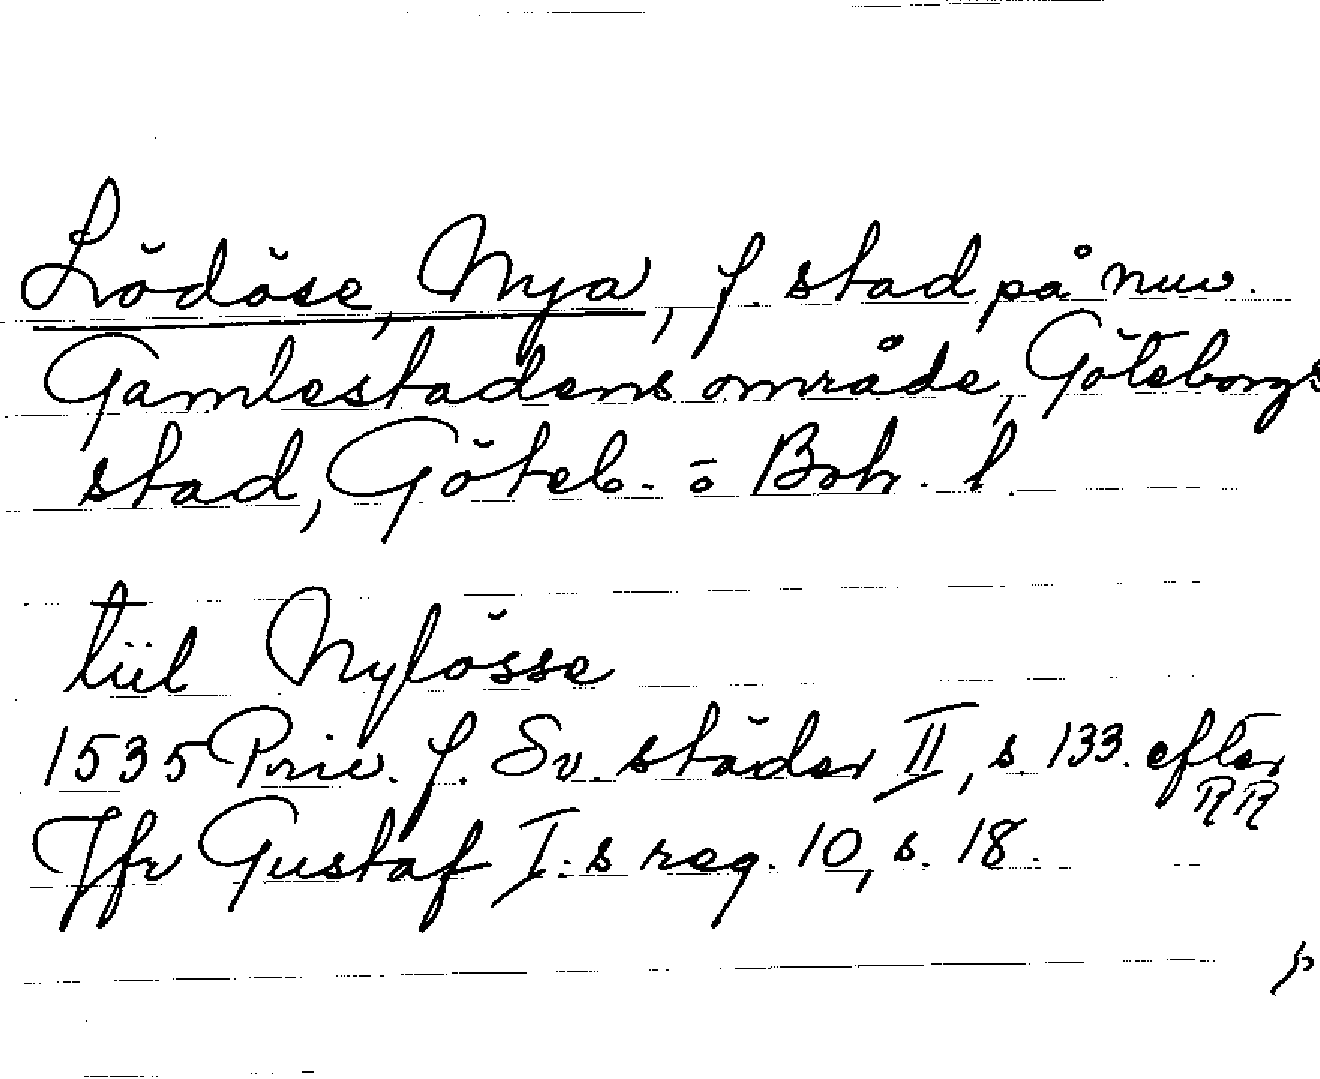 Lödöse, Nya, f. stad på nuv.
Gamlestadens område, Göteborgs
stad, Göteb. o Boh. l.
tiil Nylösse
1535 Priv. f. Sv. städer II, s. 133. efter
RR
Jfr Gustaf I:s reg. 10, s. 18.